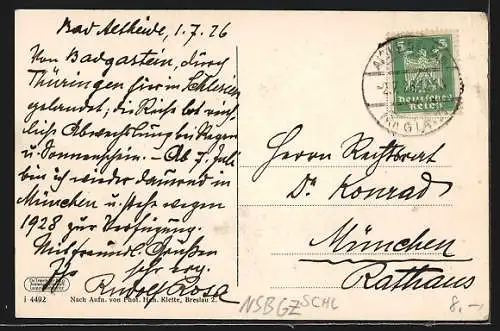 Bad Altheide, 1.7.26
Von Badgastein, durch
Thüringen hier in Schlesien
gelandet; die Reise bot reich-
liche Abwechslung bei Regen
u. Sonnenschein. – Ab 7. Juli
bin ich wieder dauernd in
München u. stehe wegen
1928 zur Verfügung.
Mit freundl. Grüßen
Ihr sehr erg.
Rudolf Rosa
i 4492
Nach Aufn. von Phot. Hch. Klette, Breslau 2.
5 5
Deutsches
Reich
Herrn Rechtsrat
Dr. Konrad
München
Rathaus
NSBGZ SCHL
8.–